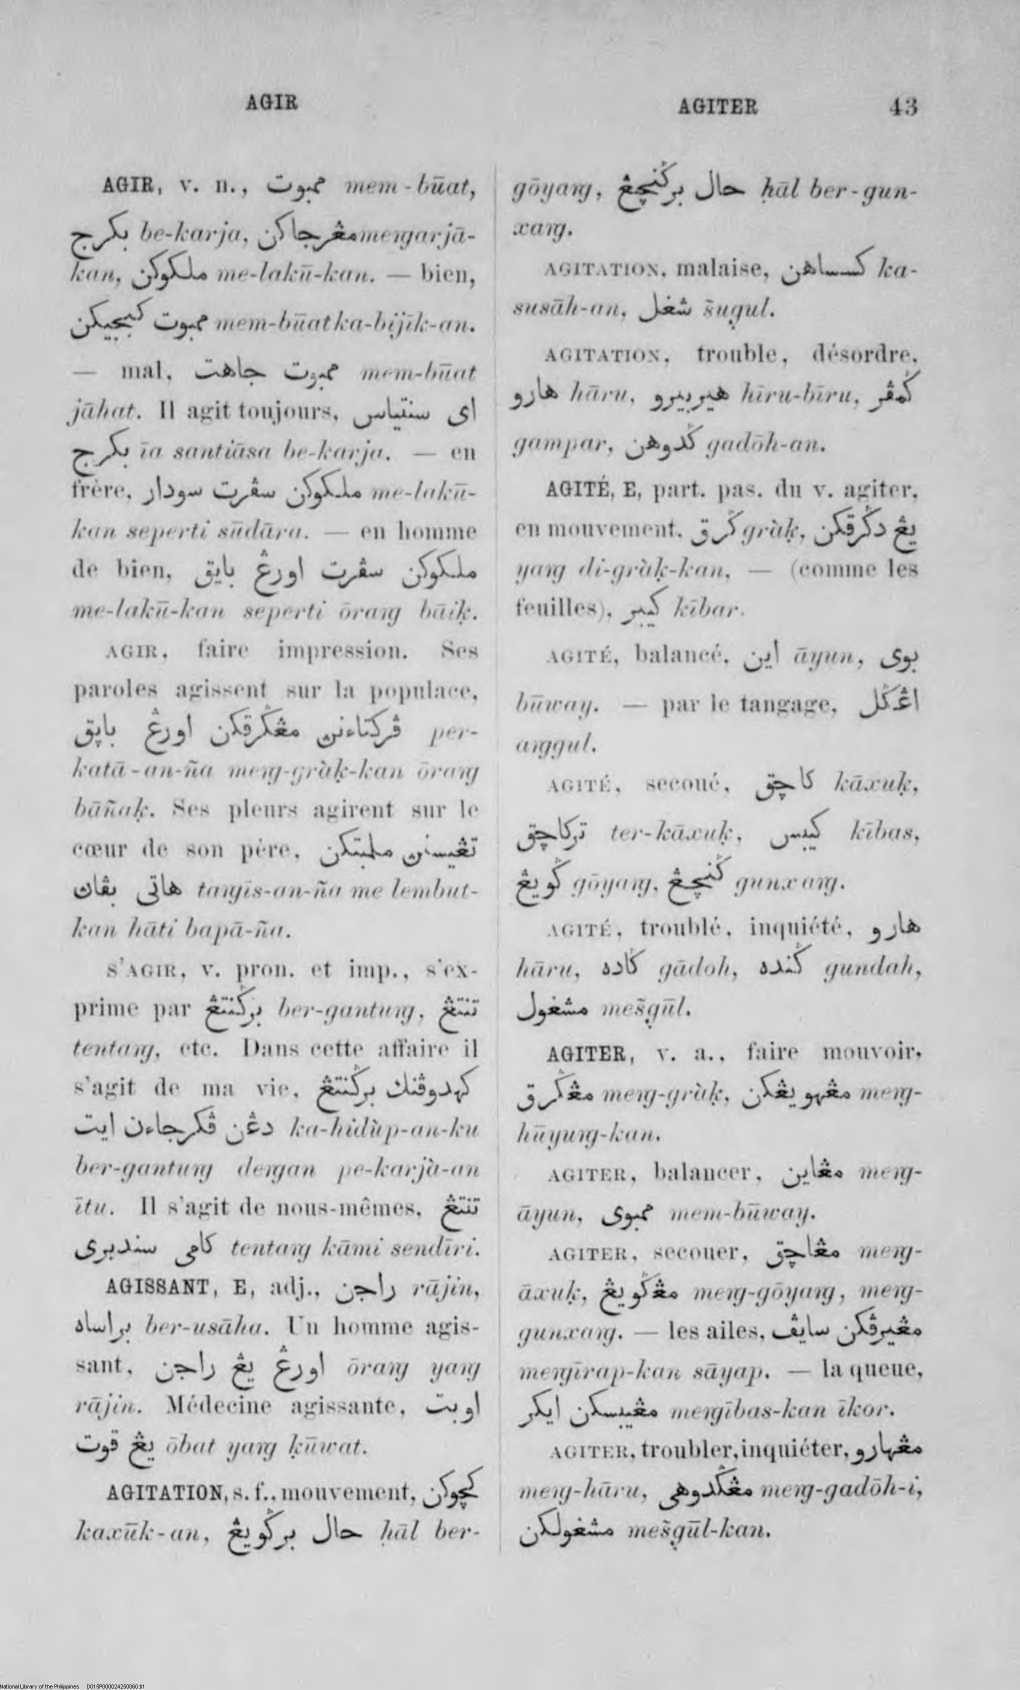 AGIR
AGITER 43
AGIR, v. n., ممبوت mem-būat,
بكرج be-karja, مڠرجاكن meŋgarjā-
kan, ملكوكن me-lakū-kan. — bien,
ممبوت كبجيكن mem-būat ka-bijīk-an.
— mal, ممبوت جاهت mem-būat
jāhat. Il agit toujours, اى سنتياس
بكرج īa santiāsa be-karja. — en
frère, ملكوكن سڤرت سودار me-lakū-
kan seperti sūdāra. — en homme
de bien, ملكوكن سڤرت اورڠ بايق
me-lakū-kan seperti ōraŋ bāiḳ.
AGIR, faire impression. Ses
paroles agissent sur la populace,
ڤركتاءنن مڠݢرقكن اورڠ باڽق per-
katā-an-ña meŋ-gràḳ-kan ōraŋ
bāñaḳ. Ses pleurs agirent sur le
cœur de son père, تڠيسنن ملمبتكن
هاتى بڤان taŋīs-an-ña me lembut-
kan hāti bapā-ña.
S'AGIR, v. pron. et imp., s'ex-
prime par برݢنتڠ ber-gantuŋ, تنتڠ
tentaŋ, etc. Dans cette affaire il
s'agit de ma vie, كهدوڤنك برݢنتڠ
دڠن ڤكرجاءن ايت ka-hidùp-an-ku
ber-gantuŋ deŋan pe-karjà-an
ītu. Il s'agit de nous-mêmes, تنتڠ
كامى سنديرى tentaŋ kāmi sendīri.
AGISSANT, E, adj., راجن rājin,
براساه ber-usāha. Un homme agis-
sant, اورڠ يڠ راجن ōraŋ yaŋ
rājin. Médecine agissante, اوبت
يڠ قوت ōbat yaŋ ḳūwat.
AGITATION, s. f., mouvement, كچوكن
kaxūk-an, حال برݢويڠ ḥāl ber-
gōyaŋ, حال برݢنچڠ ḥāl ber-gun-
xaŋ.
AGITATION, malaise, كسساهن ka-
susāh-an, شغل šugul.
AGITATION, trouble, désordre,
هارو hāru, هيروبيرو hīru-bīru, ݢمڤر
gampar, ݢدوهن gadōh-an.
AGITÉ, E, part. pas. du v. agiter,
en mouvement, ݢرق gràḳ, يڠ دݢرقكن
yaŋ di-gràḳ-kan, — (comme les
feuilles), كيبر kībar.
AGITÉ, balancé, اين āyun, بوى
būway. — par le tangage, اڠݢل
aŋgul.
AGITÉ, secoué, كاچق kāxuḳ,
تركاچق ter-kāxuḳ, كيبس kības,
ݢويڠ gōyaŋ, ݢنچڠ gunxaŋ.
AGITÉ, troublé, inquiété, هارو
hāru, ݢاده gādoh, ݢنده gundah,
مشغول mešgūl.
AGITER, v. a., faire mouvoir,
مڠݢرق meŋ-gràḳ, مڠهويڠكن meŋ-
hūyuŋ-kan.
AGITER, balancer, مڠاين meŋ-
āyun, ممبوى mem-būway.
AGITER, secouer, مڠاچق meŋ-
āxuḳ, مڠݢويڠ meŋ-gōyaŋ, meŋ-
gunxaŋ. — les ailes, مڠيرڤكن سايڤ
meŋīrap-kan sāyap. — la queue,
مڠيبسكن ايكر meŋības-kan īkor.
AGITER, troubler, inquiéter, مڠهارو
meŋ-hāru, مڠݢدوهى meŋ-gadōh-i,
مشغولكن mešgūl-kan.
National Library of the Philippines